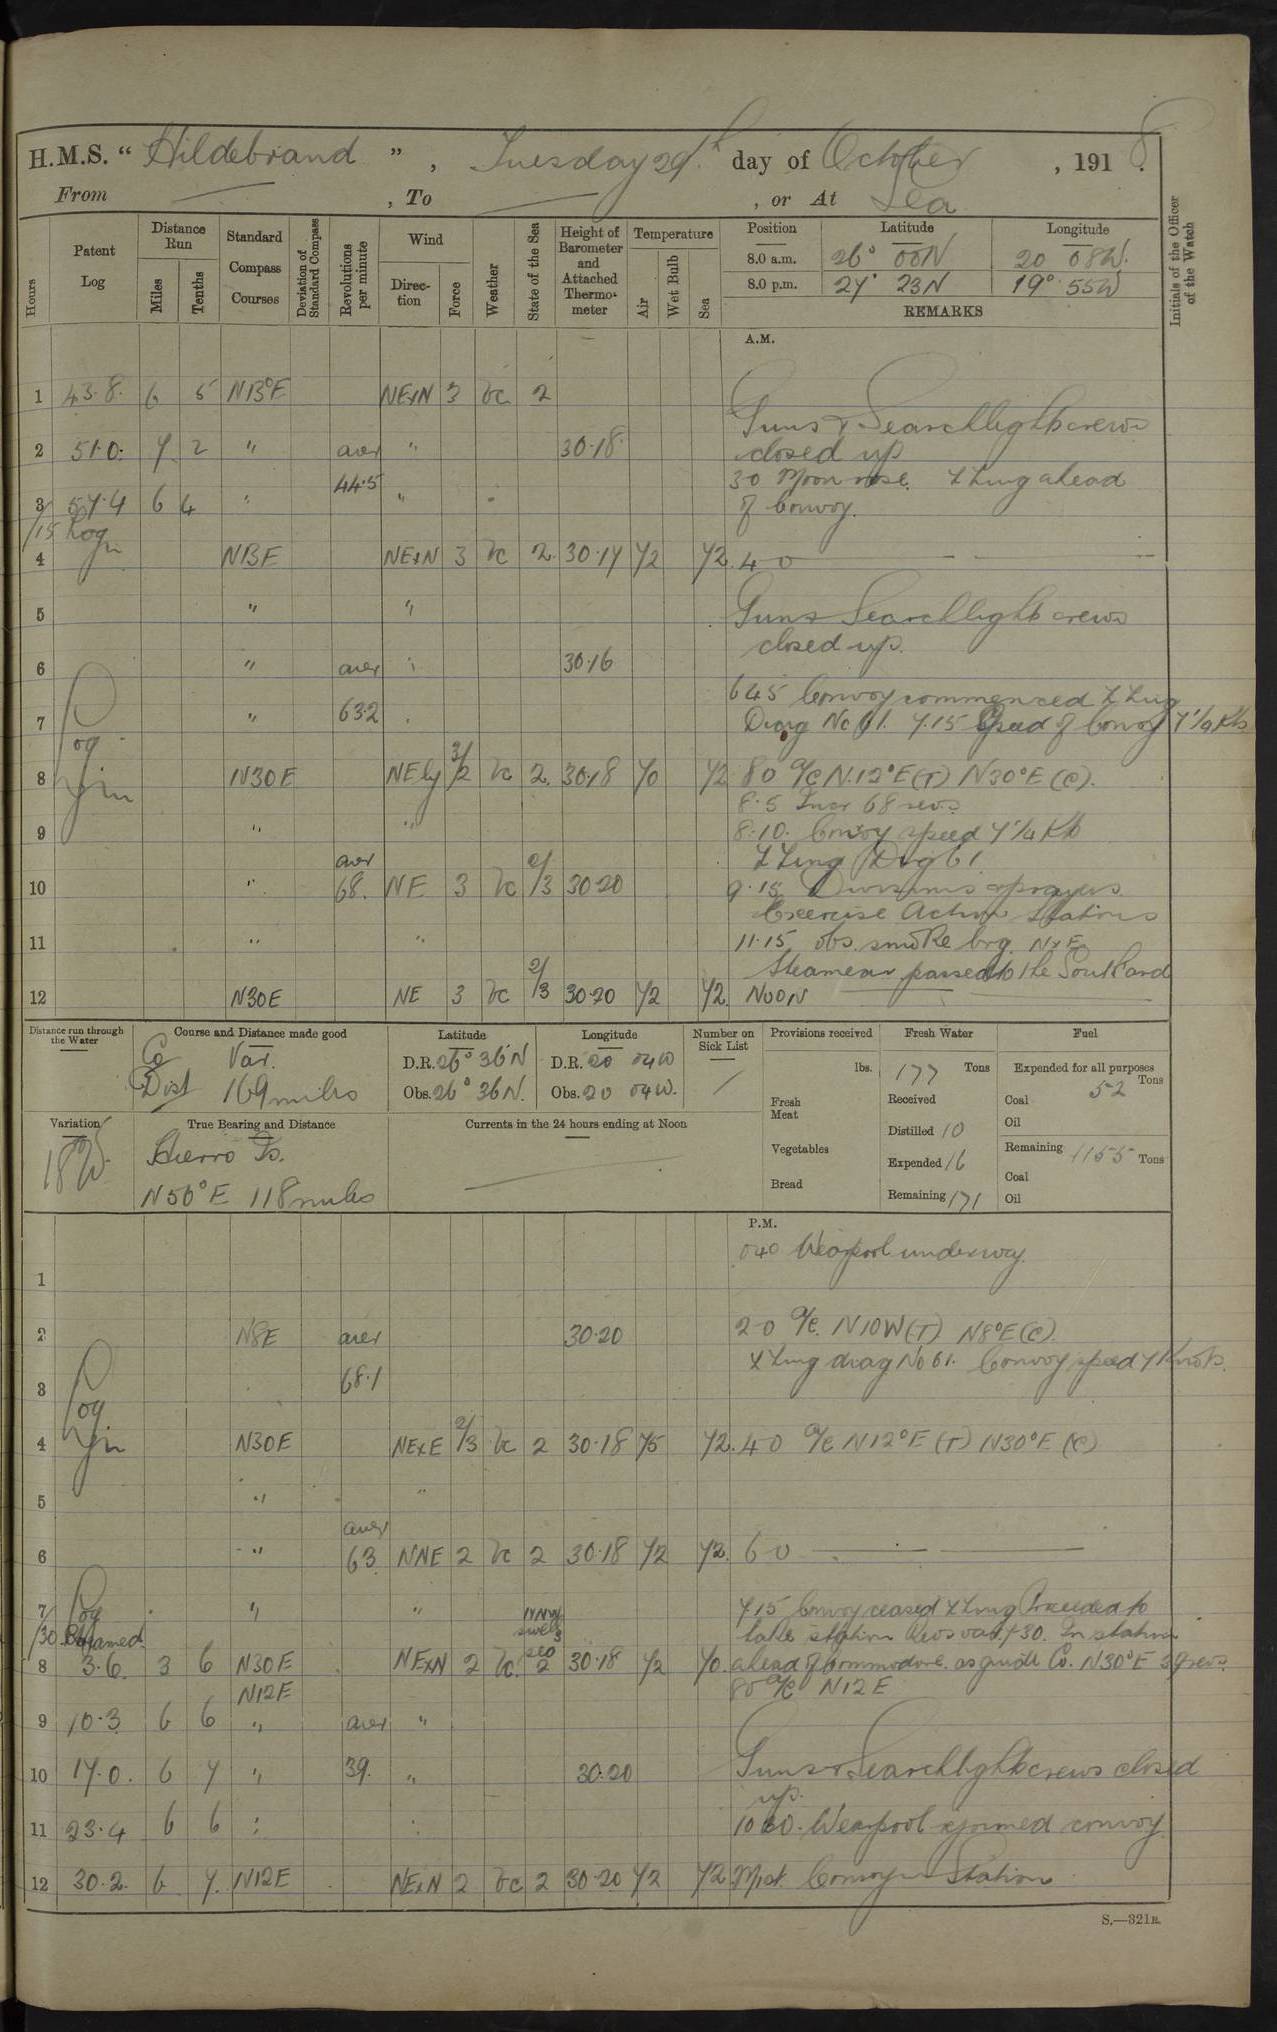 H.M.S. “ Hildebrand ” , Tuesday 29th day of October , 1918.
From — , To — , or At Sea
Hours
Patent Log
Distance Run
Miles
Tenths
Standard Compass Courses
Deviation of Standard Compass
Revolutions per minute
Wind
Direction
Force
Weather
State of the Sea
Height of Barometer and Attached Thermometer
Temperature
Air
Wet Bulb
Sea
Position Latitude Longitude
8.0 a.m. 26° 00N 20 08W.
8.0 p.m. 27° 23N 19° 55W
REMARKS
Initials of the Officer of the Watch
A.M.
1 43.8. 6 5 NB°E NExN 3 bc 2
Guns & Searchlight crews
2 51.0. 7 2 " aver " 30.18 closed up
44.5 30 Moon rose. ahead
3 57.4 6 4 " " of Convoy.
/15 Log
in
4 NBE NExN 3 bc 2 30.17 72 72 4 0 —
5 " " Guns Searchlight crews
closed up.
6 " aver " 30.16
645 Convoy commenced Z Zing
7 " 63.2 Diag No 61. 7.15 Speed of Convoy 7 1/4 Kts
Log in
8 N30E NEly 3/2 bc 2 30.18 70 72 80 a/c N.12°E (T) N30°E (C).
8.5 Incr 68 revs
9 " " 8.10. Convoy speed 7 1/4 Kts
aver Z Zing Diag 61.
10 " 68. NE 3 bc 2/3 30.20 9.15 Divisions & prayers
Exercise Action Stations
11 " " 11.15 obs. smoke brg. NxE
Steamer passed to the Southard
12 N30E NE 3 bc 2/3 30.20 72 72 Noon
Distance run through the Water
Course and Distance made good
Co Var.
Dist 169 miles
Latitude
D.R. 26° 36N
Obs. 26° 36N.
Longitude
D.R. 20 04W
Obs. 20 04W.
Number on Sick List
/
Provisions received
lbs.
Fresh Meat
Vegetables
Bread
Fresh Water
177 Tons
Received
Distilled 10
Expended 16
Remaining 171
Fuel
Expended for all purposes
52 Tons
Coal
Oil
Remaining 1155 Tons
Coal
Oil
Variation
18W
True Bearing and Distance
Hierro Is.
N56°E 118 miles
Currents in the 24 hours ending at Noon
P.M.
040 Wearpool underway.
1
2 N8E aver 30.20 2 0 a/c. N10W (T) N8°E (C).
Z Zing diag No 61. Convoy speed 7 Knots.
3 68.1
Log in
4 N30E NExE 2/3 bc 2 30.18 75 72. 4 0 a/c N12°E (T) N30°E (C)
5 " "
aver
6 " 63 NNE 2 bc 2 30.18 72 72. 6 0 —
7 Log " " NNW swell 3 715 Convoy ceased Z Zing Proceeded to
/30 Streamed take station Revs var. 730. In station
8 3.6. 3 6 N30E NExN 2 bc. 2 30.18 72 70. ahead of Commodore. as guide Co. N30°E 39 revs
N12E 80 a/c N12E
9 10.3 6 6 " aver "
10 17.0. 6 7 " 39. " 30.20 Guns & Searchlight crews closed
up.
11 23.4 6 6 " 1030. Wearpool rejoined convoy
12 30.2. 6 7. N12E NExN 2 bc 2 30.20 72 72 Midt. Convoy in Station
S.—321B.